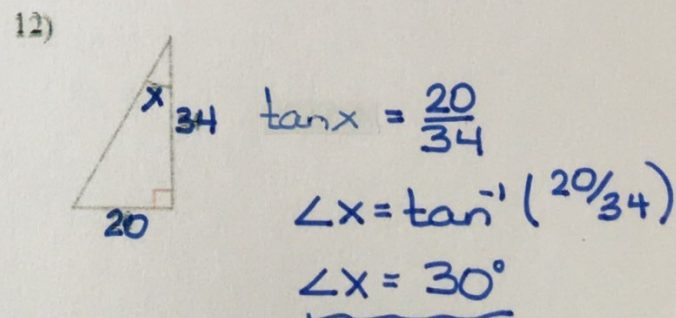 12)
x
34
20
tan x = 20/34
∠x = tan⁻¹ (20/34)
∠x = 30°